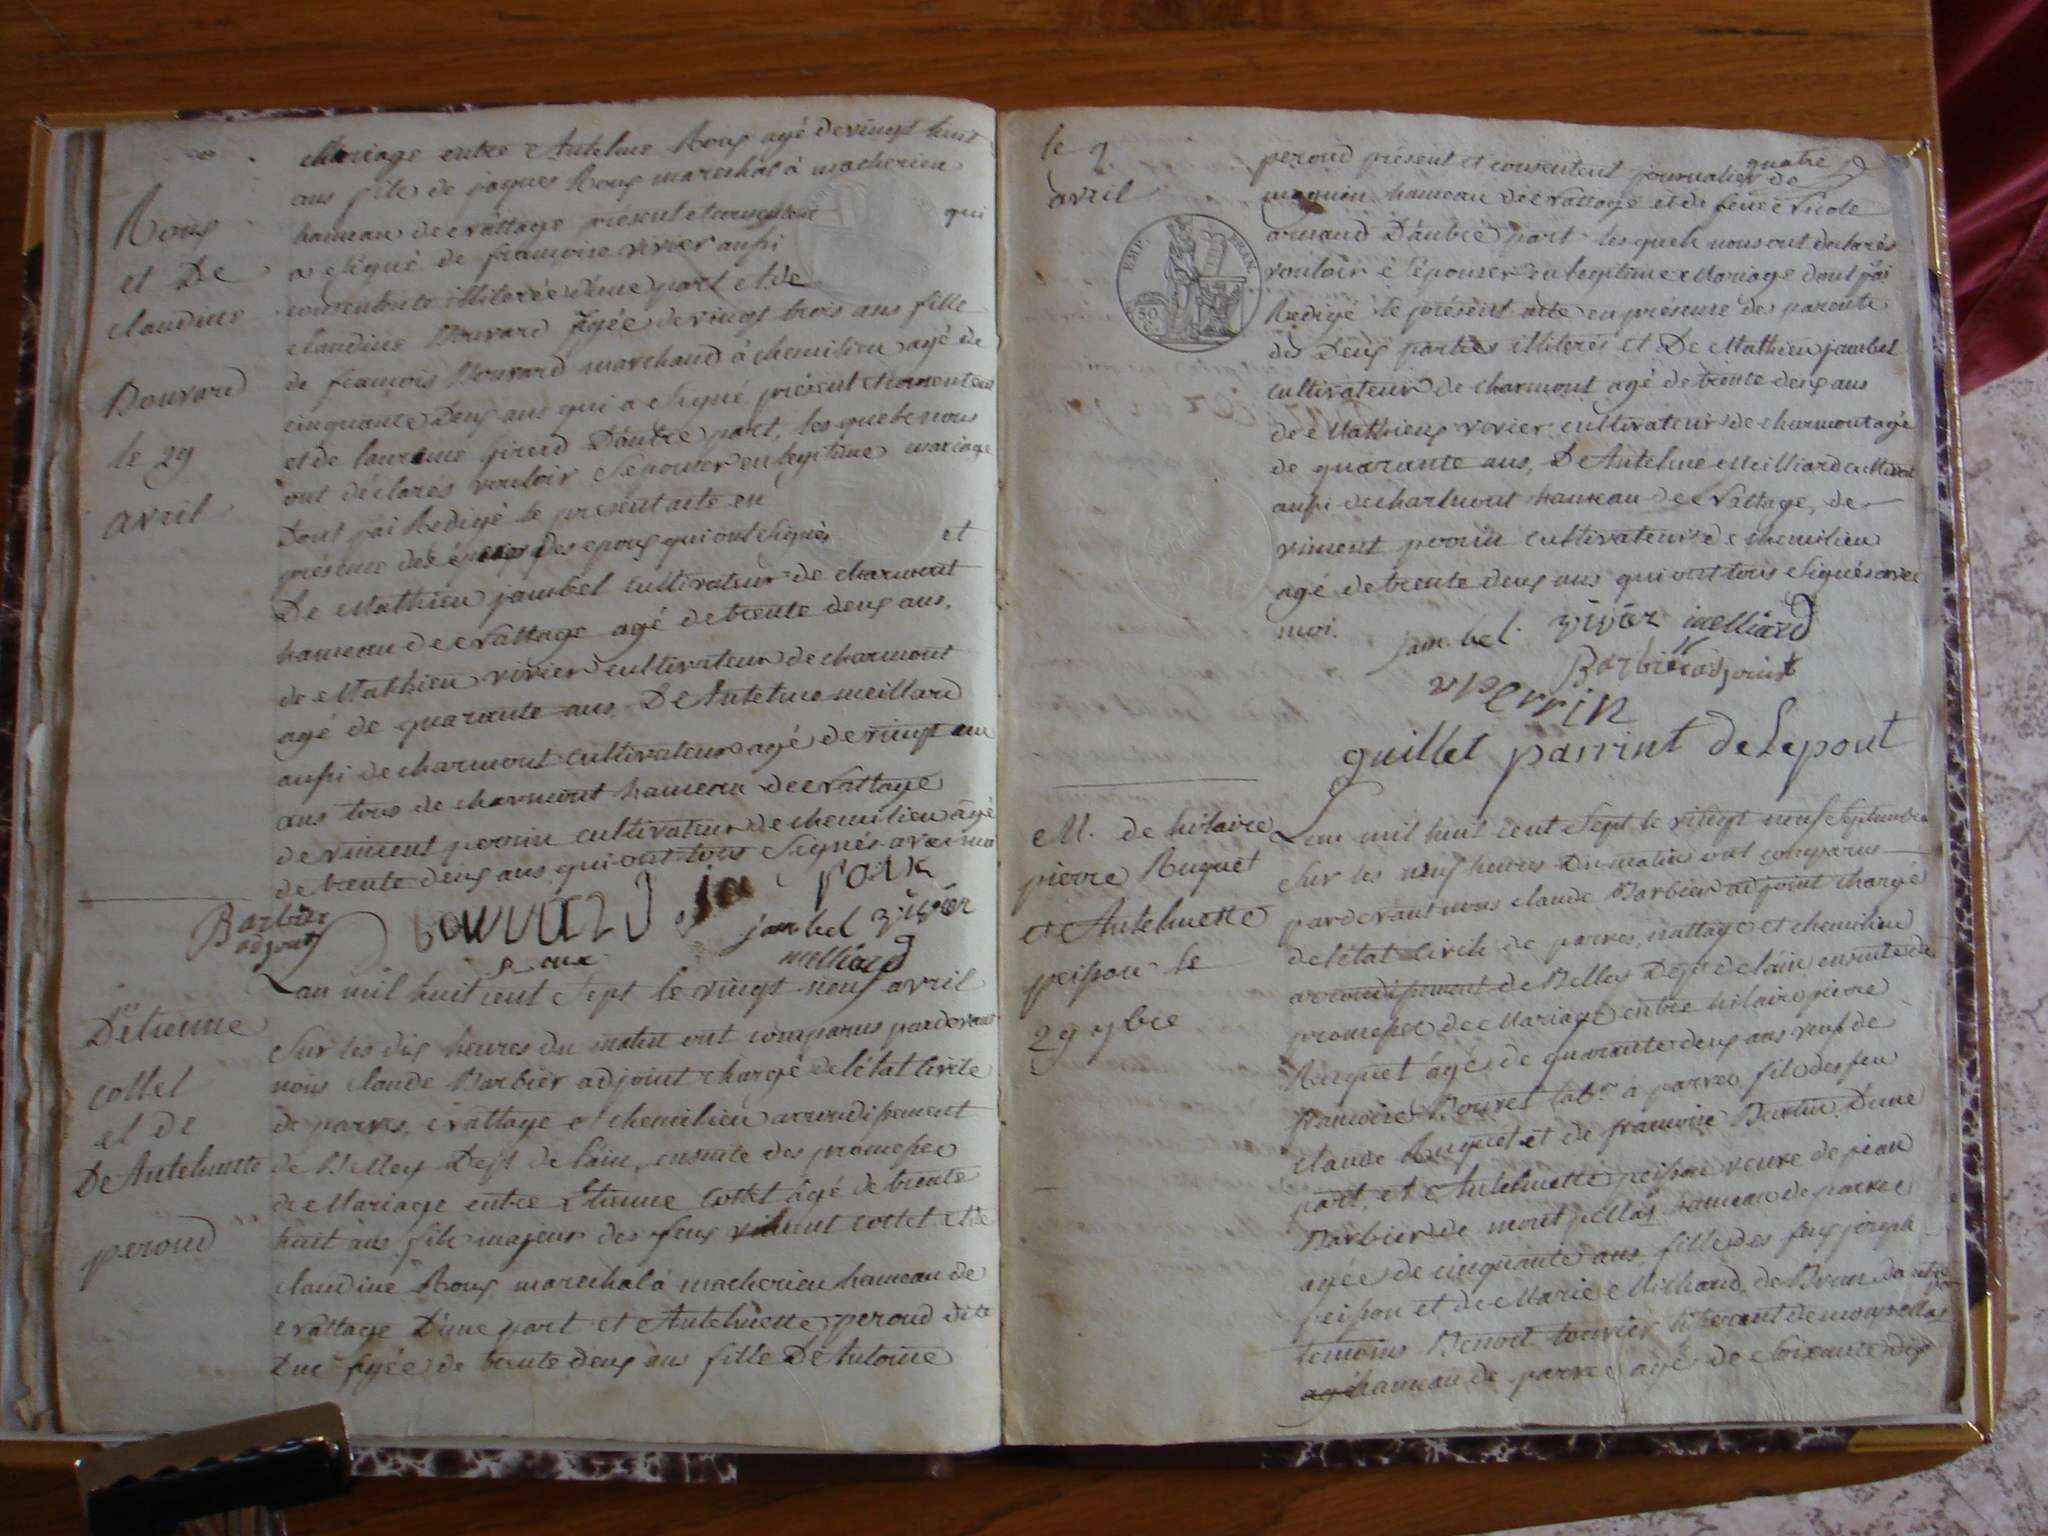 Roux
et De
claudine
Bouvard
le 29
avril
Mariage entre Antelme Roux agé de vingt huit
ans fils de jaques Roux marechal à macherieu
hameau de nattage présent et consentent qui
a signé de françoise vivier aussi
consentente illiterée d'une part et de
claudine Bouvard Agée de vingt trois ans fille
de françois Bouvard marchand à chemilieu agé de
cinquante Deux ans qui a signé présent et consentent
et de laurence Girerd D'autre part, les quels nous
ont déclarés vouloir s'epouser en legitime mariage
Dont jai Redigé le present acte en
présence des des epoux qui ont signés et
De Mathieu jambel cultivateur de charmont
hameau de nattage agé de trente deux ans,
de Mathieu vivier cultivateur de charmont
agé de quarante ans, De Antelme meillard
aussi de charmont cultivateur agé de vingt
ans tous de charmont hameau de nattage
de vincent perrin cultivateur de chemilieu agé
de trente deux ans qui ont tous signés avec moi
Barbier
adjoint
bouvard
jambel vivier
Roux
meilliard
D'étienne
collet
et de
De Antelmette
peroud
Lan mil huit cent sept le vingt neuf avril
sur les dix heures du matin ont comparus pardevant
nous claude Barbier adjoint chargé de létat civile
de parves, nattage et chemilieu arrondissement
de Belley Dept de l'ain, ensuite des promesses
de Mariage entre Etienne Collet âgé de trente
huit ans fils majeur des feux vincent collet et de
claudine Roux marechal à macherieu hameau de
nattage D'une part et Antelmette peroud dite
Duc Agée de trente deux ans fille De Antoine
le 2
avril
peroud présent et consentent journalier de
quatre
hameau de nattage et de feue Nicole
armand D'autre part les quels nous ont declarés
vouloir s'épouser en legitime Mariage dont jai
Redigé le présent acte en présence des parents
des Deux parties illiterés et De Mathieu jambel
cultivateur de charmont agé de trente deux ans
de Mathieu vivier cultivateur de charmont agé
de quarante ans, De Antelme Meilliard cultivat
aussi de charmont hameau de Nattage, de
vincent perrin cultivateur de chemilieu
agé de trente deux ans qui ont tous signés avec
moi.
jambel. vivier meilliard
Barbier adjoint
v perrin
guillet De Lepont
EMP. FRAN.
50
C.
M. de hilaire
pierre Ruguet
et Antelmette
peisson le
29 7bre
Lan mil huit cent sept le vingt neuf septembre
sur les neuf heures du matin ont comparus
pardevant nous claude Barbier adjoint chargé
de létat civile de parves, nattage et chemilieu
arrondissement de Belley Dept de l'ain ensuite des
promesses de Mariage entre hilaire pierre
Ruguet âgé de quarante deux ans veuf de
françoise Bouvet labr à parves fils des feu
claude Ruguet et de françoise Bertin D'une
part, et Antelmette peisson veuve de jean
Barbier de montpellas hameau de parves
agée de cinquante ans fille des feux joseph
peisson et de Marie Michaud de Bran
temoins Benoit
agé hameau de parves agé de soixante dix